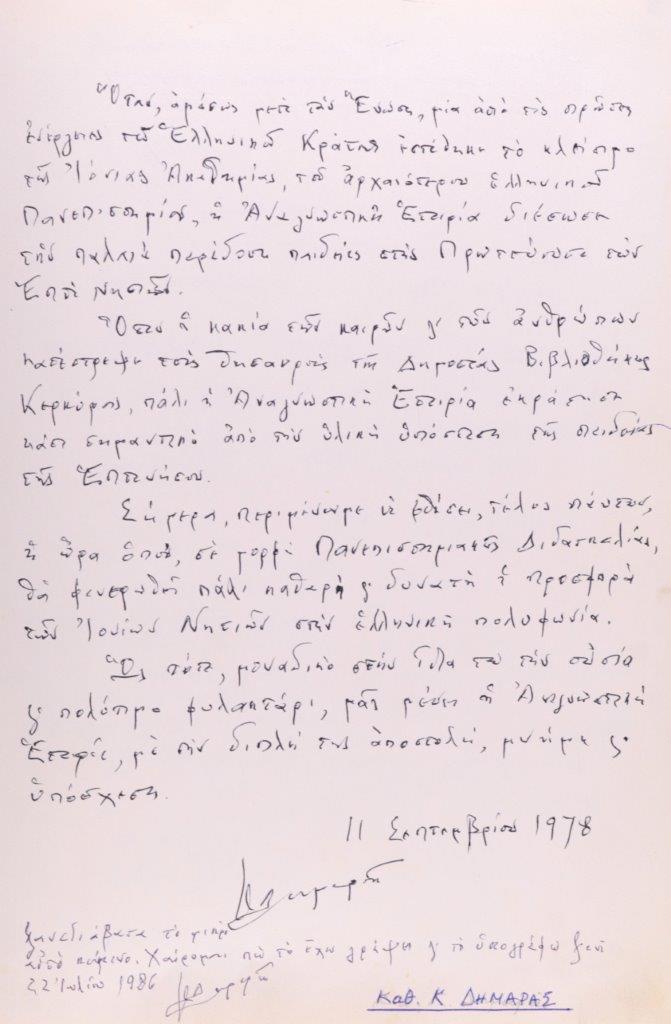 Ὅταν, ἀμέσως μετὰ τὴν Ἕνωση, μία ἀπὸ τὶς πρῶτες
ἐνέργειες τοῦ Ἑλληνικοῦ Κράτους ἐστάθηκε τὸ κλείσιμο
τῆς Ἰόνιας Ἀκαδημίας, τοῦ ἀρχαιότερου ἑλληνικοῦ
Πανεπιστημίου, ἡ Ἀναγνωστικὴ Ἑταιρία διέσωσε
τὴν παλαιὰ παράδοση παιδείας στὴν Πρωτεύουσα τῶν
Ἑπτὰ Νησιῶν.
Ὅταν ἡ κακία τῶν καιρῶν ϗ τῶν ἀνθρώπων
κατέστρεψε τοὺς θησαυροὺς τῆς Δημοσίας Βιβλιοθήκης
Κερκύρας, πάλι ἡ Ἀναγνωστικὴ Ἑταιρία ἐκράτησε
κάτι σημαντικὸ ἀπὸ τὴν ὑλικὴ ὑπόσταση τῆς παιδείας
τῆς Ἑπτανήσου.
Σήμερα, περιμένουμε νὰ φθάσει, τέλος πάντων,
ἡ ὥρα ὅπου, σὲ μορφὴ Πανεπιστημιακῆς Διδασκαλίας,
θὰ φανερωθῆ πάλι καθαρὴ ϗ δυνατὴ ἡ προσφορὰ
τῶν Ἰονίων Νησιῶν στὴν ἑλληνικὴ πολυφωνία.
Ὣς τότε, μοναδικὸ στὴν του τὴν οὐσία
ϗ πολύτιμο φυλαχτάρι, μᾶς μένει ἡ Ἀναγνωστικὴ
Ἑταιρία, μὲ τὴν διπλή της ἀποστολή, μνήμη ϗ
ὑπόσχεση.
11 Σεπτεμβρίου 1978
Ξαναδιάβασα τὸ μικρὸ
αὐτὸ κείμενο. Χαίρομαι ποὺ τὸ ἔχω γράψει ϗ τὸ ὑπογράφω ξανά
22 Ἰουλίου 1986
Καθ. Κ ΔΗΜΑΡΑΣ